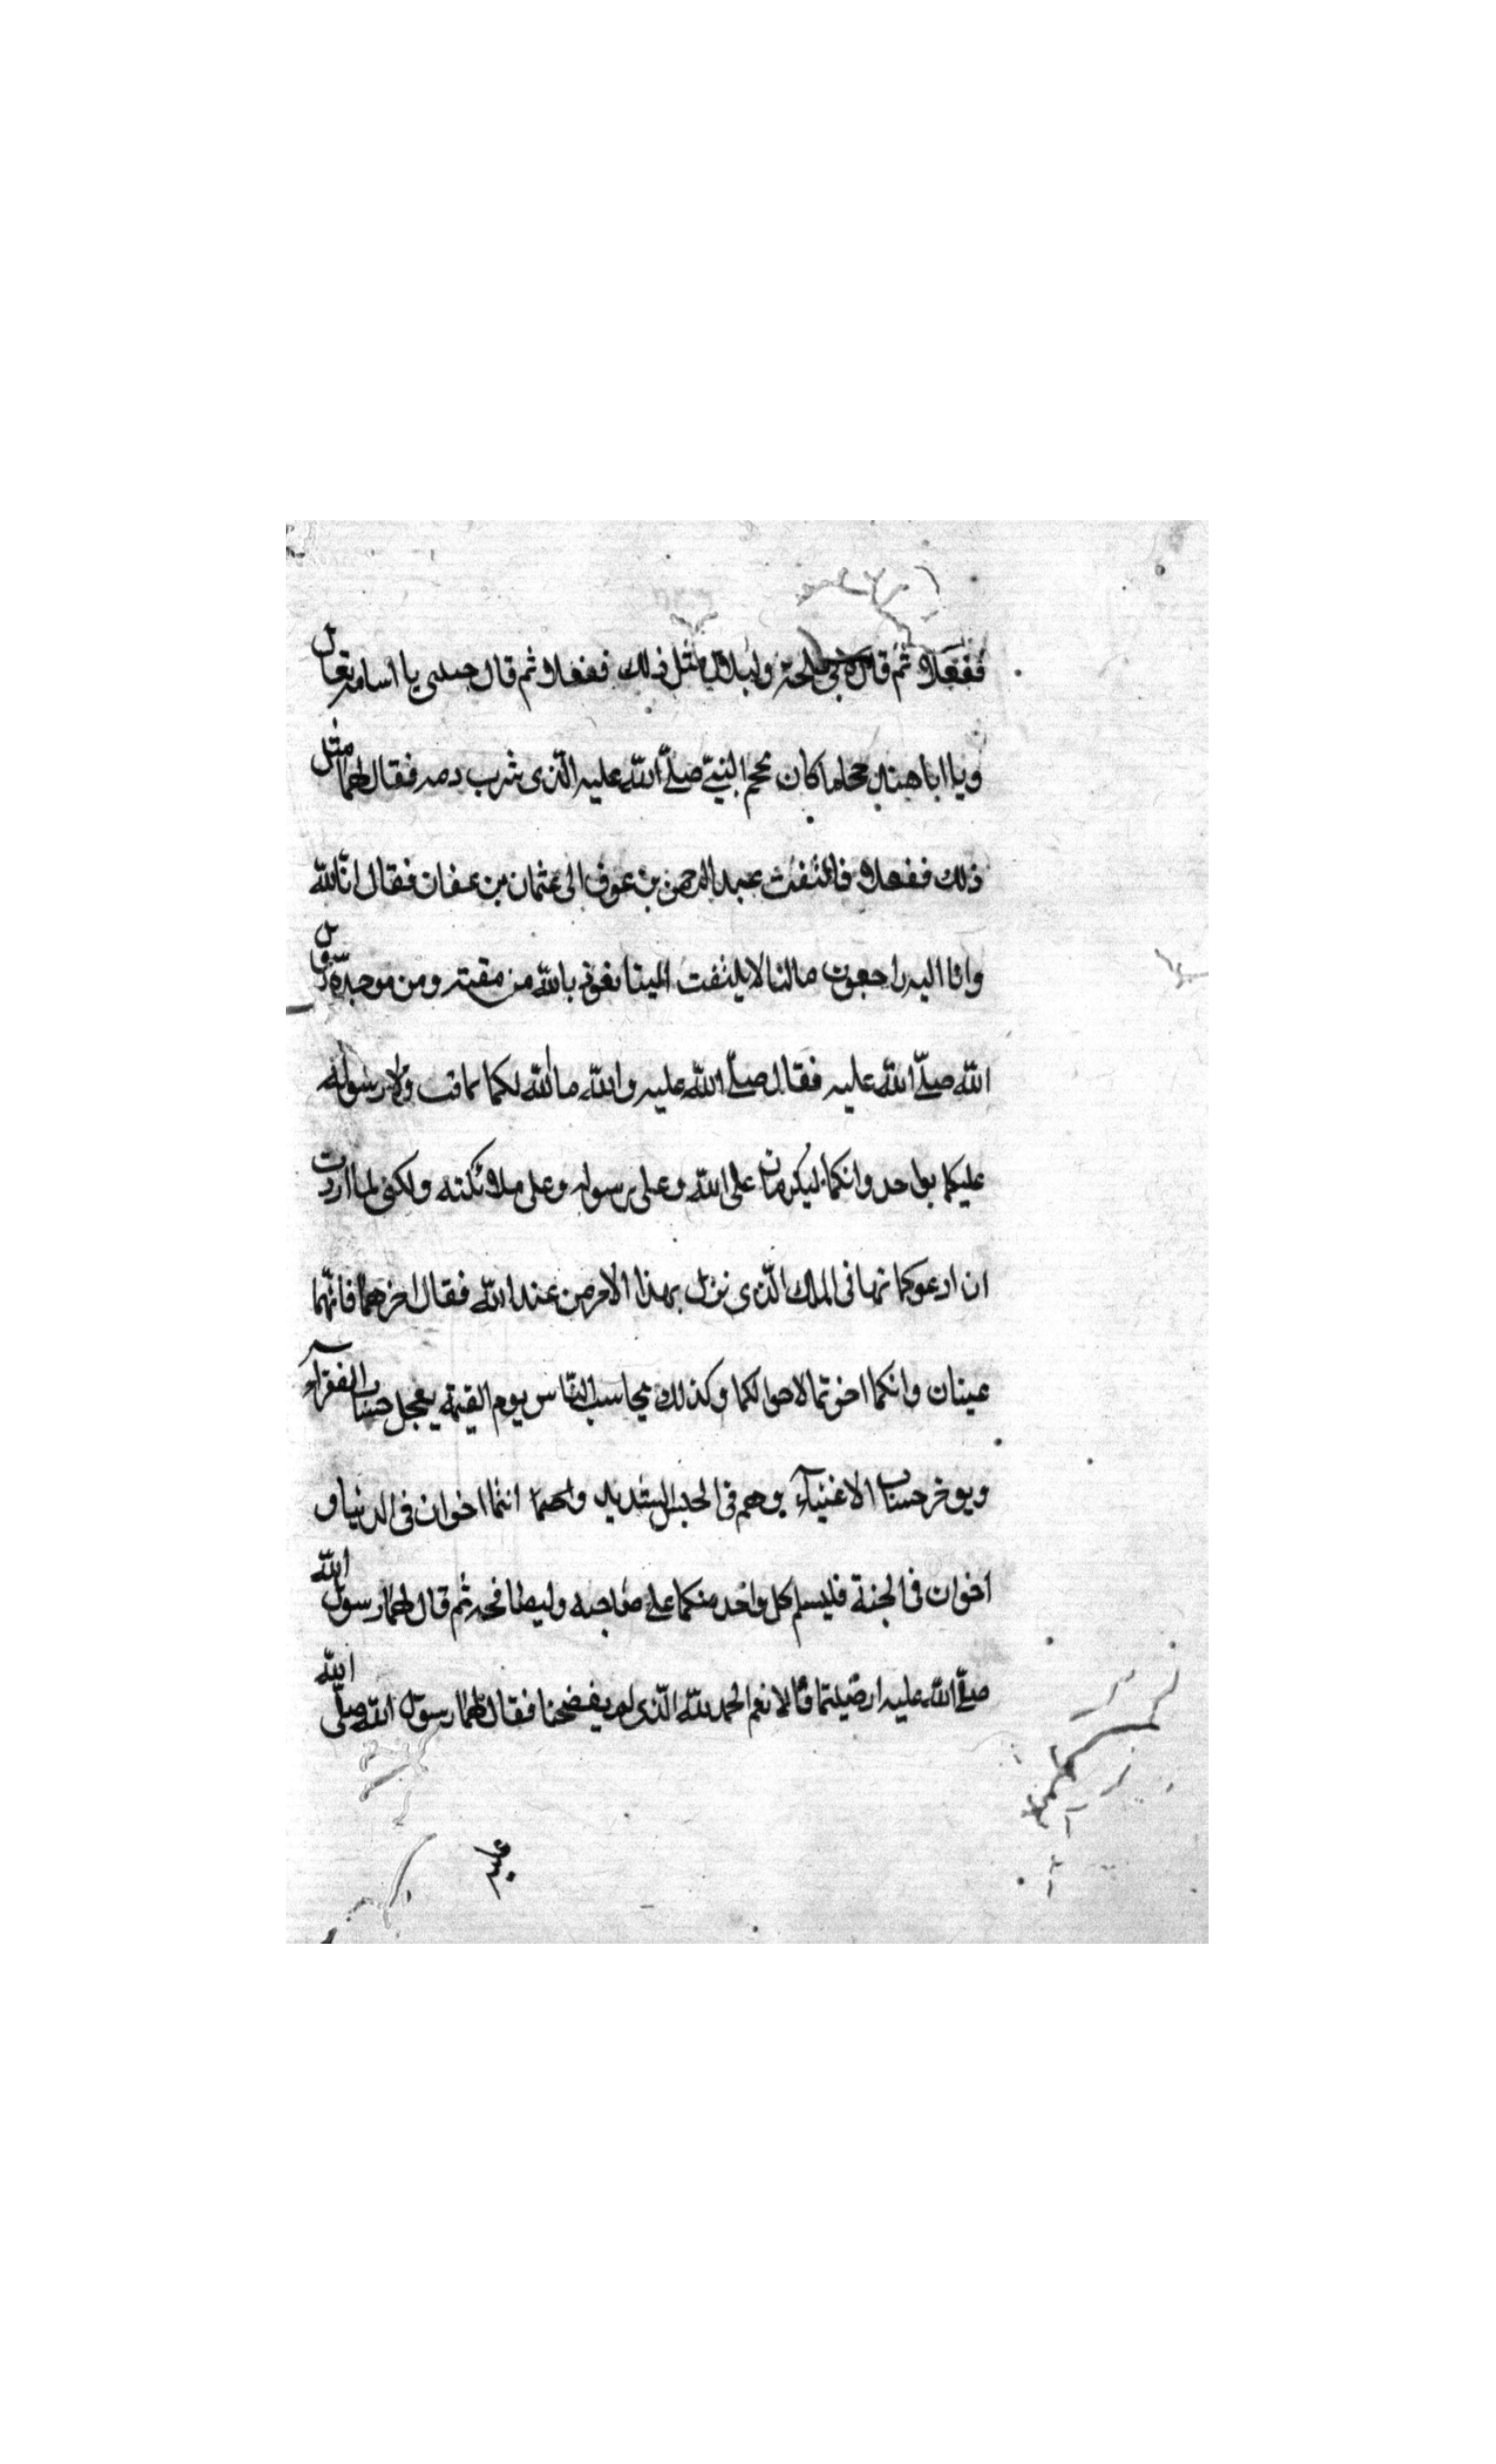 ففعلا ثم قال لابي طلحة ولبلال مثل ذلك ففعلا ثم قال حسبي يا اسامة تعال
ويا ابا هند محلما كان نحجم النبيّ صلّى الله عليه الّذى شرب دمه فقال لهما مثل
ذلك ففعلا فالتفت عبد الرحمن بن عوف الى عثمان بن عفان فقال انا لله
وانا اليه راجعون مالنا لا يلتفت الينا نعوذ بالله من مقته ومن موجدة رسول
الله صلّى الله عليه فقال صلّى الله عليه والله ما لله لكما بماقت ولا رسوله
عليكما بواحد وانكما ليكرمان على الله وعلى رسوله وعلى ملائكته ولكنى لما اردت
ان ادعوكما نهانى الملك الّذى نزل بهذا الامر من عند الله فقال اخرهما فانّهما
عينان وانكما اخوتما لاحوالكما وكذلك يحاسب النّاس يوم القيمة يعجل حساب الفقرآء
ويوخر حساب الاغنيآء وهم فى الحبس الشديد وانكما انتما اخوان فى الدنيا و
اخوان فى الجنة فليسلم كل واحد منكما على صاحبه وليصافحه ثم قال لهما رسول الله
صلّى الله عليه ارضيتما قالا نعم الحمد لله الّذى لم يفضحنا فقال لهما رسول الله صلّى الله
عليه